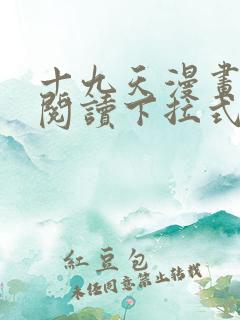 十九天漫畫
閱讀下拉式
紅豆包
未经同意禁止转载